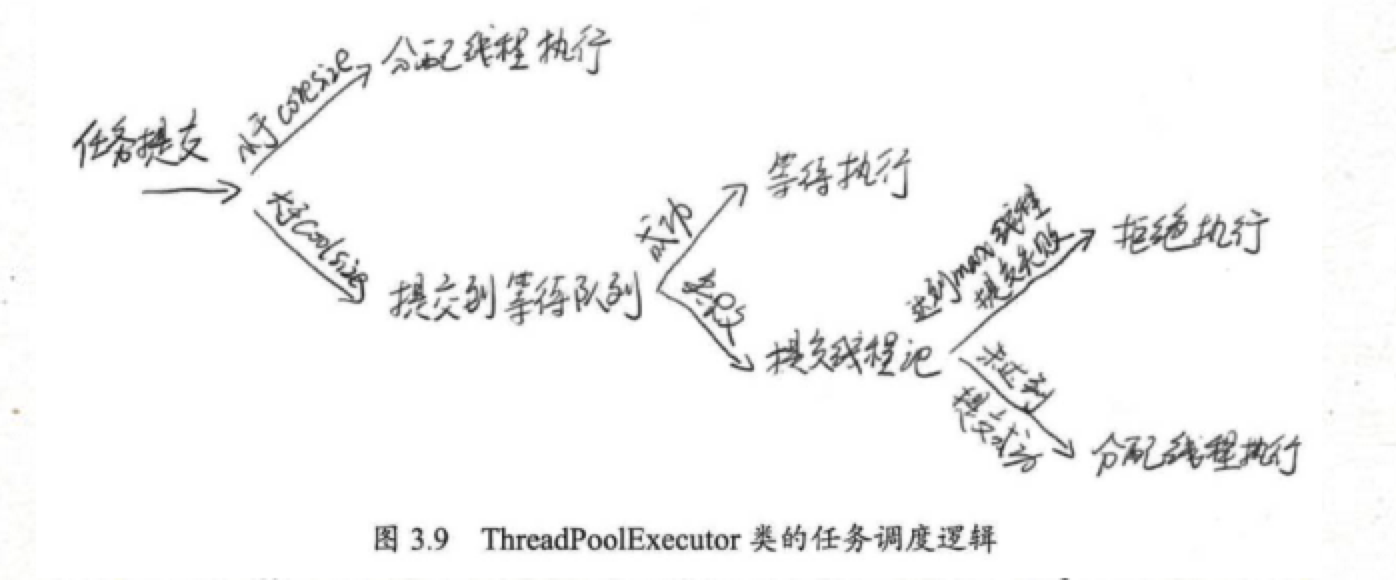 任务提交
小于coresize
分配线程执行
大于Coolsize
提交到等待队列
成功
等待执行
失败
提交线程池
达到max线程
提交失败
拒绝执行
未达到
提交成功
分配线程执行
图 3.9 ThreadPoolExecutor 类的任务调度逻辑